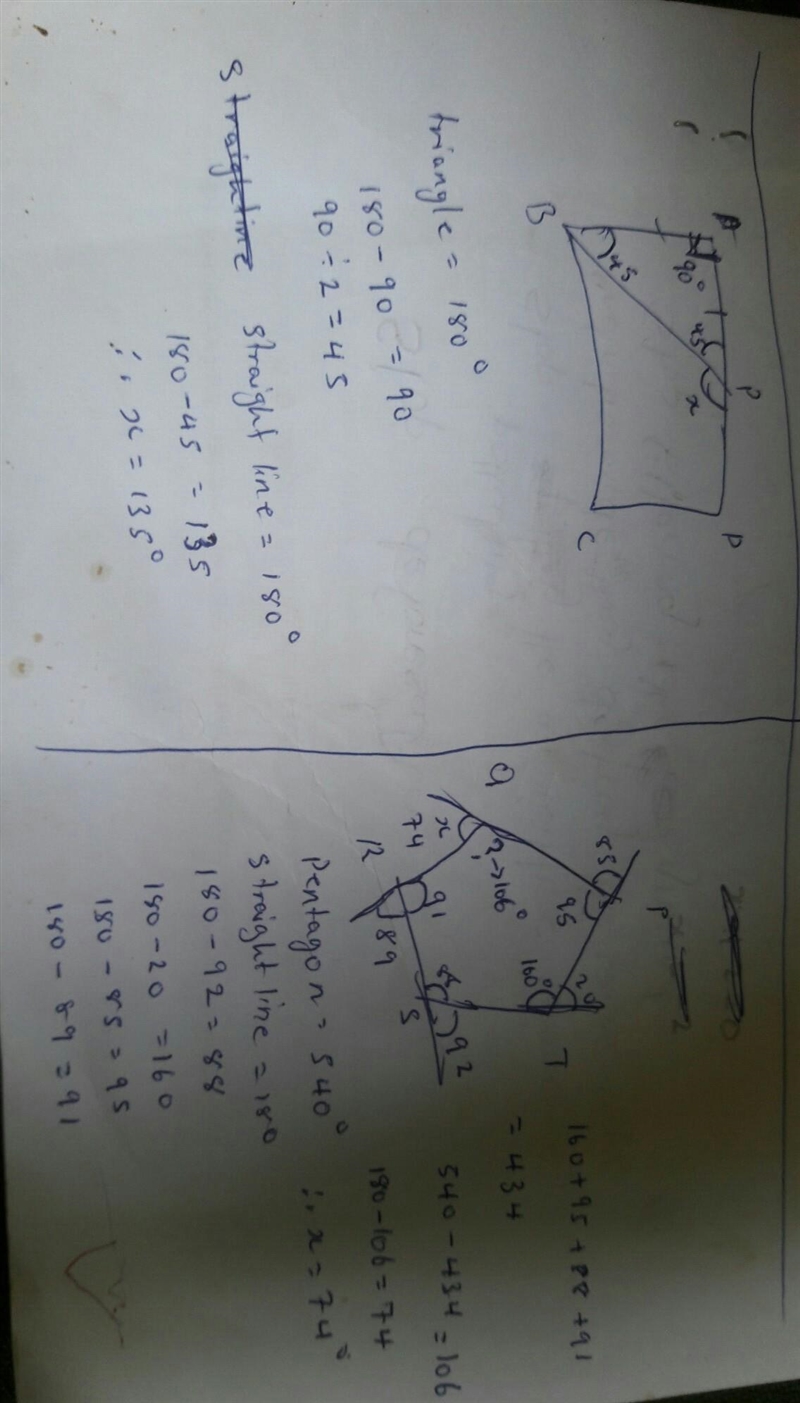 A
P
D
90°
45
x
45
B
C
triangle = 180°
180 - 90 = 90
90 ÷ 2 = 45
straight line = 180°
180 - 45 = 135
∴ x = 135°
P
85
95
20
160°
T
Q
? → 106°
x
74
R
91
89
S
92
Pentagon = 540°
straight line = 180
180 - 92 = 88
180 - 20 = 160
180 - 85 = 95
180 - 89 = 91
160 + 95 + 88 + 91
= 434
540 - 434 = 106
180 - 106 = 74
∴ x = 74°